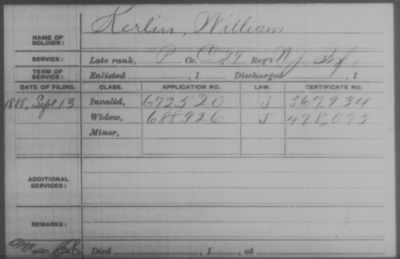 NAME OF SOLDIER: Kerlin, William
SERVICE: Late rank, P Co. 29 Reg't N J Inf.
TERM OF SERVICE: Enlisted , 1 Discharged , 1
DATE OF FILING. CLASS. APPLICATION NO. LAW. CERTIFICATE NO.
1888, Sept 13 Invalid, 672520 J 567934
Widow, 688926 J 478,093
Minor,
ADDITIONAL SERVICES:
REMARKS:
Died , 1 , at